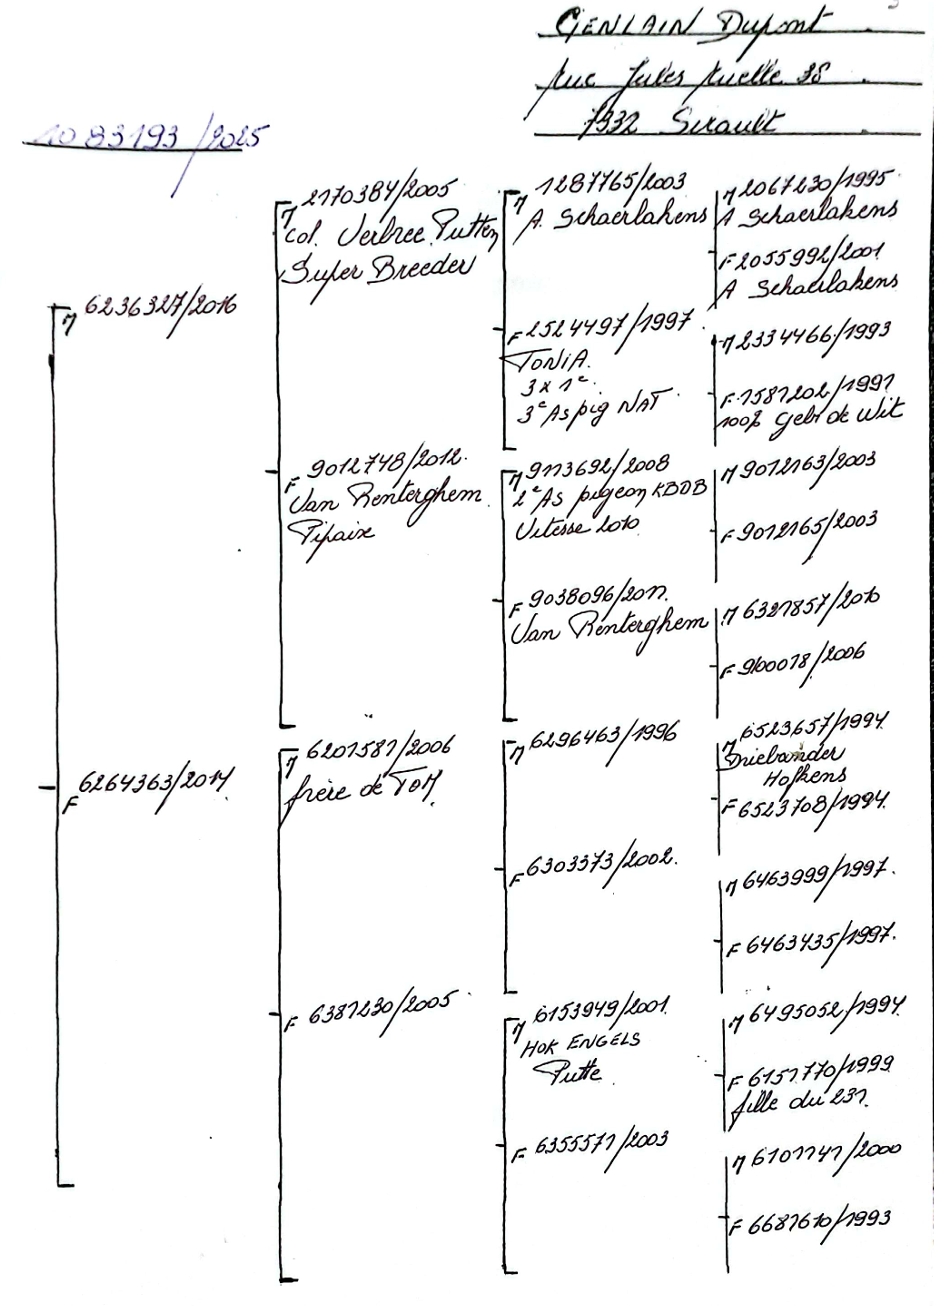 GENLAIN Dupont
rue Jules Ruelle 38
7332 Sirault
1083193/2025
M 6236327/2016
F 6264363/2014
M 2170384/2005
Col. Verbree Putten
Super Breeder
F 9012748/2012.
Van Renterghem
Pipaix
M 6201581/2006
frère de TOM
F 6387230/2005
M 1287765/2003
A. Schaerlakens
F 2524497/1997
TONIA.
3 x 1e.
3e As pig NAT.
M 9113692/2008
2e As pigeon KBDB
Vitesse 2010
F 9038096/2011.
Van Renterghem
M 6296463/1996
F 6303373/2002.
M 6153949/2001.
HOK ENGELS
Putte
F 6355571/2003
M 2067230/1995
A Schaerlakens
F 2055992/2001
A Schaerlakens
M 2334466/1993
F 1581202/1991
100% Gebr de Wit
M 9012163/2003
F 9012165/2003
M 6321857/2010
F 9100018/2006
M 6523657/1994.
Driebander
Hofkens
F 6523708/1994.
M 6463999/1997.
F 6463435/1997.
M 6495052/1994
F 6151770/1999
fille du 231.
M 6101741/2000
F 6681610/1993